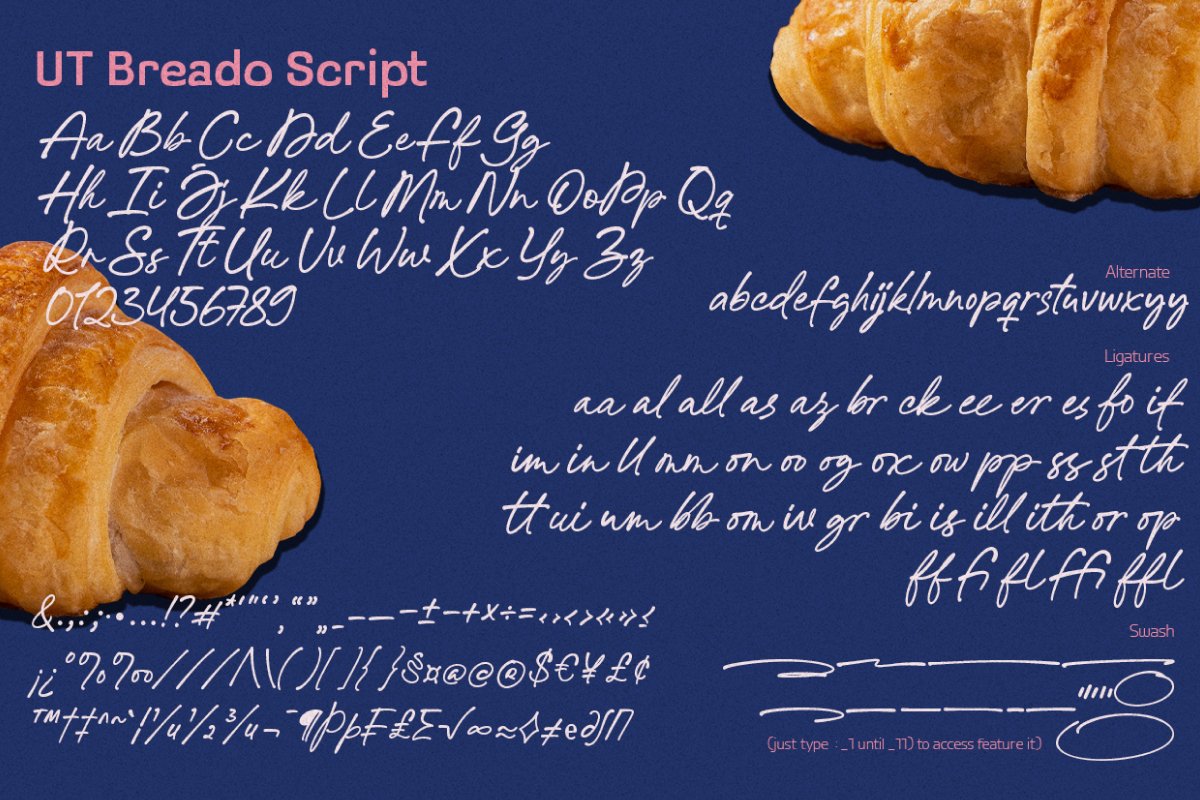 UT Breado Script
Aa Bb Cc Dd Ee Ff Gg
Hh Ii Jj Kk Ll Mm Nn Oo Pp Qq
Rr Ss Tt Uu Vv Ww Xx Yy Zz
0123456789
Alternate
abcdefghijklmnopqrstuvwxyy
Ligatures
aa al all as az br ck ee er es fo if
im in ll mm on oo og ox ow pp ss st th
tt ui um bb om iv gr bi is ill ith or op
ff fi fl ffi ffl
&.,:;·•...!?#*"'“”‘’,„_–—-±−+×÷=‹›<>«»≥≤
¡¿°%‰///\/\\()[]{}§¤@©®$€¥£¢
™†‡^~`|¹/₄¹/₂³/₄¬¯¶Þþ₣₤Σ√∞≈◊≠e∂∫∏
Swash
(just type : _1 until _11) to access feature it)